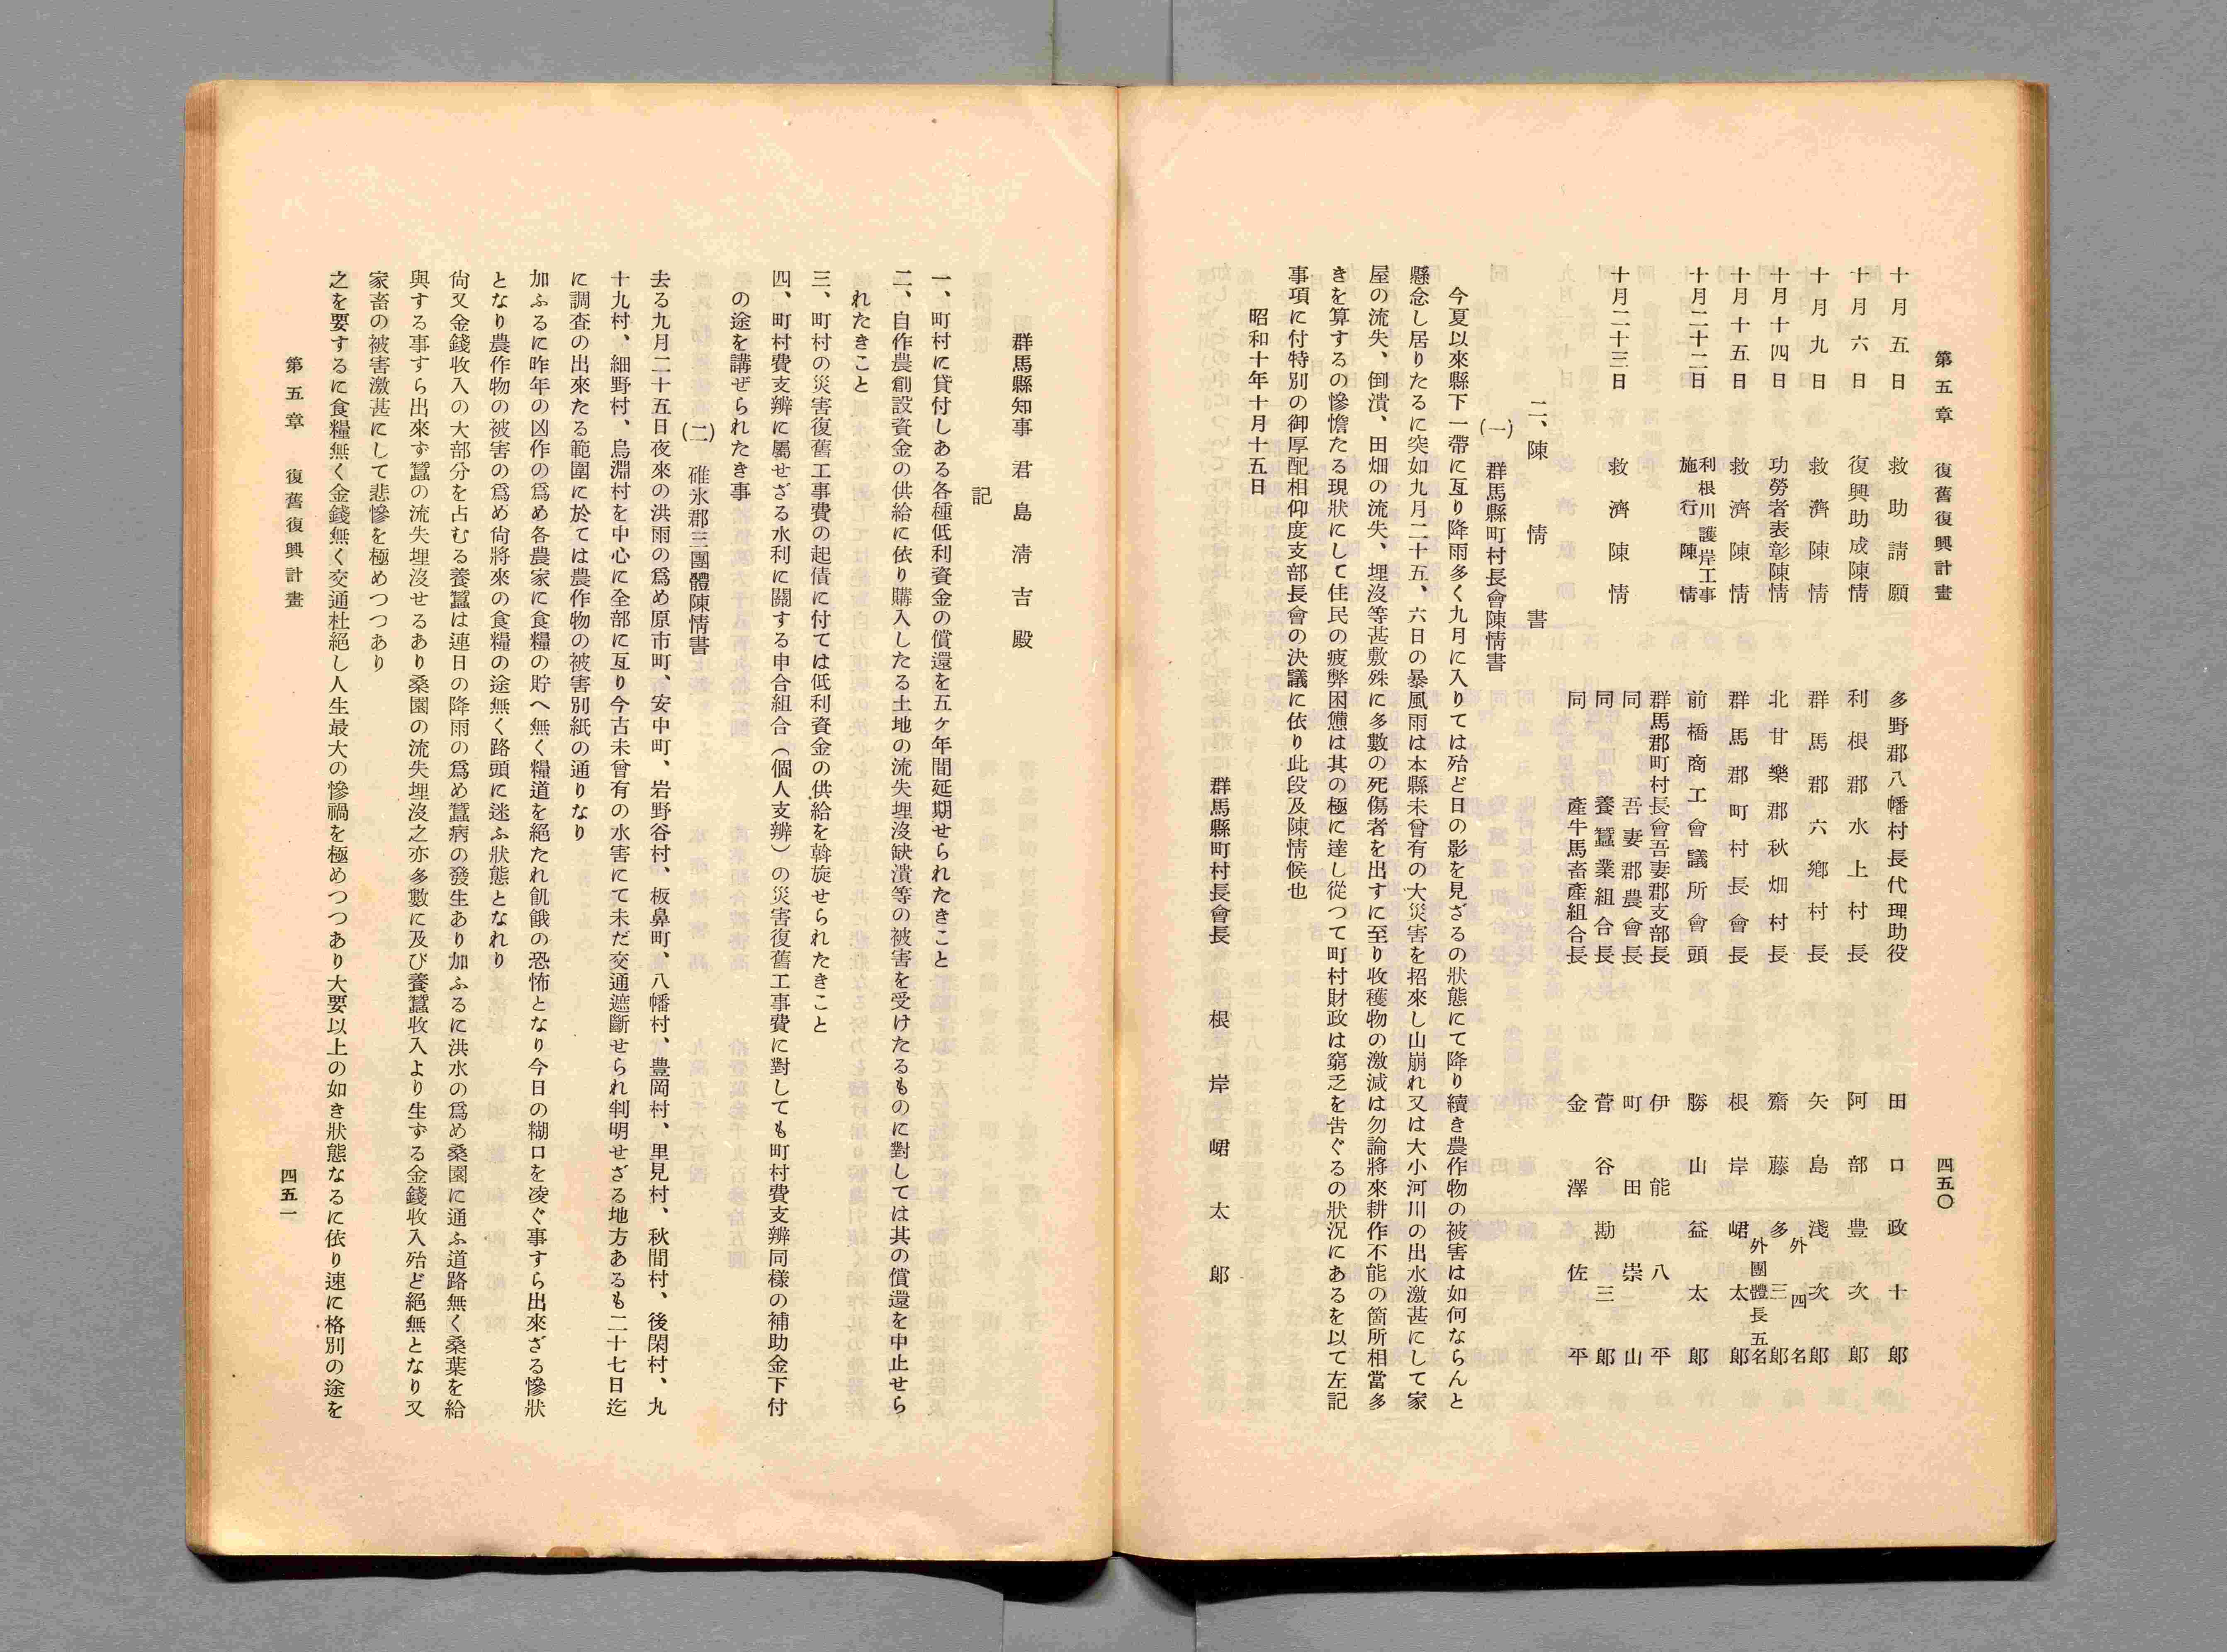 第五章　復舊復興計畫　四五〇
十月五日　救助請願　多野郡八幡村長代理助役　田口政十郎
十月六日　復興助成陳情　利根郡水上村長　阿部豊次郎
十月九日　救濟陳情　群馬郡六鄕村長　矢島淺次郎
外四名
十月十四日　功勞者表彰陳情　北甘樂郡秋畑村長　齋藤多三郎
外團體長五名
十月十五日　救濟陳情　群馬郡町村長會長　根岸峮太郎
十月二十二日　利根川護岸工事施行陳情　前橋商工會議所會頭　勝山益太郎
群馬郡町村長會吾妻郡支部長　伊能八平
十月二十三日　救濟陳情　同　吾妻郡農會長　町田崇山
同　養蠶業組合長　菅谷勘三郎
同　產牛馬畜產組合長　金澤佐平
二、陳情書
(一)　群馬縣町村長會陳情書
今夏以來縣下一帶に亙り降雨多く九月に入りては殆ど日の影を見ざるの狀態にて降り續き農作物の被害は如何ならんと
懸念し居りたるに突如九月二十五、六日の暴風雨は本縣未曾有の大災害を招來し山崩れ又は大小河川の出水激甚にして家
屋の流失、倒潰、田畑の流失、埋沒等甚敷殊に多數の死傷者を出すに至り收穫物の激減は勿論將來耕作不能の箇所相當多
きを算するの慘憺たる現狀にして住民の疲弊困憊は其の極に達し從つて町村財政は窮乏を告ぐるの狀況にあるを以て左記
事項に付特別の御厚配相仰度支部長會の決議に依り此段及陳情候也
昭和十年十月十五日
群馬縣町村長會長　根岸峮太郎
群馬縣知事　君島淸吉殿
記
一、町村に貸付しある各種低利資金の償還を五ケ年間延期せられたきこと
二、自作農創設資金の供給に依り購入したる土地の流失埋沒缺潰等の被害を受けたるものに對しては其の償還を中止せら
れたきこと
三、町村の災害復舊工事費の起債に付ては低利資金の供給を斡旋せられたきこと
四、町村費支辨に屬せざる水利に關する申合組合（個人支辨）の災害復舊工事費に對しても町村費支辨同樣の補助金下付
の途を講ぜられたき事
(二)　碓氷郡三團體陳情書
去る九月二十五日夜來の洪雨の爲め原市町、安中町、岩野谷村、板鼻町、八幡村、豊岡村、里見村、秋間村、後閑村、九
十九村、細野村、烏淵村を中心に全部に亙り今古未曾有の水害にて未だ交通遮斷せられ判明せざる地方あるも二十七日迄
に調査の出來たる範圍に於ては農作物の被害別紙の通りなり
加ふるに昨年の凶作の爲め各農家に食糧の貯へ無く糧道を絕たれ飢餓の恐怖となり今日の糊口を凌ぐ事すら出來ざる慘狀
となり農作物の被害の爲め尙將來の食糧の途無く路頭に迷ふ狀態となれり
尙又金錢收入の大部分を占むる養蠶は連日の降雨の爲め蠶病の發生あり加ふるに洪水の爲め桑園に通ふ道路無く桑葉を給
與する事すら出來ず蠶の流失埋沒せるあり桑園の流失埋沒之亦多數に及び養蠶收入より生ずる金錢收入殆ど絕無となり又
家畜の被害激甚にして悲慘を極めつつあり
之を要するに食糧無く金錢無く交通杜絕し人生最大の慘禍を極めつつあり大要以上の如き狀態なるに依り速に格別の途を
第五章　復舊復興計畫　四五一